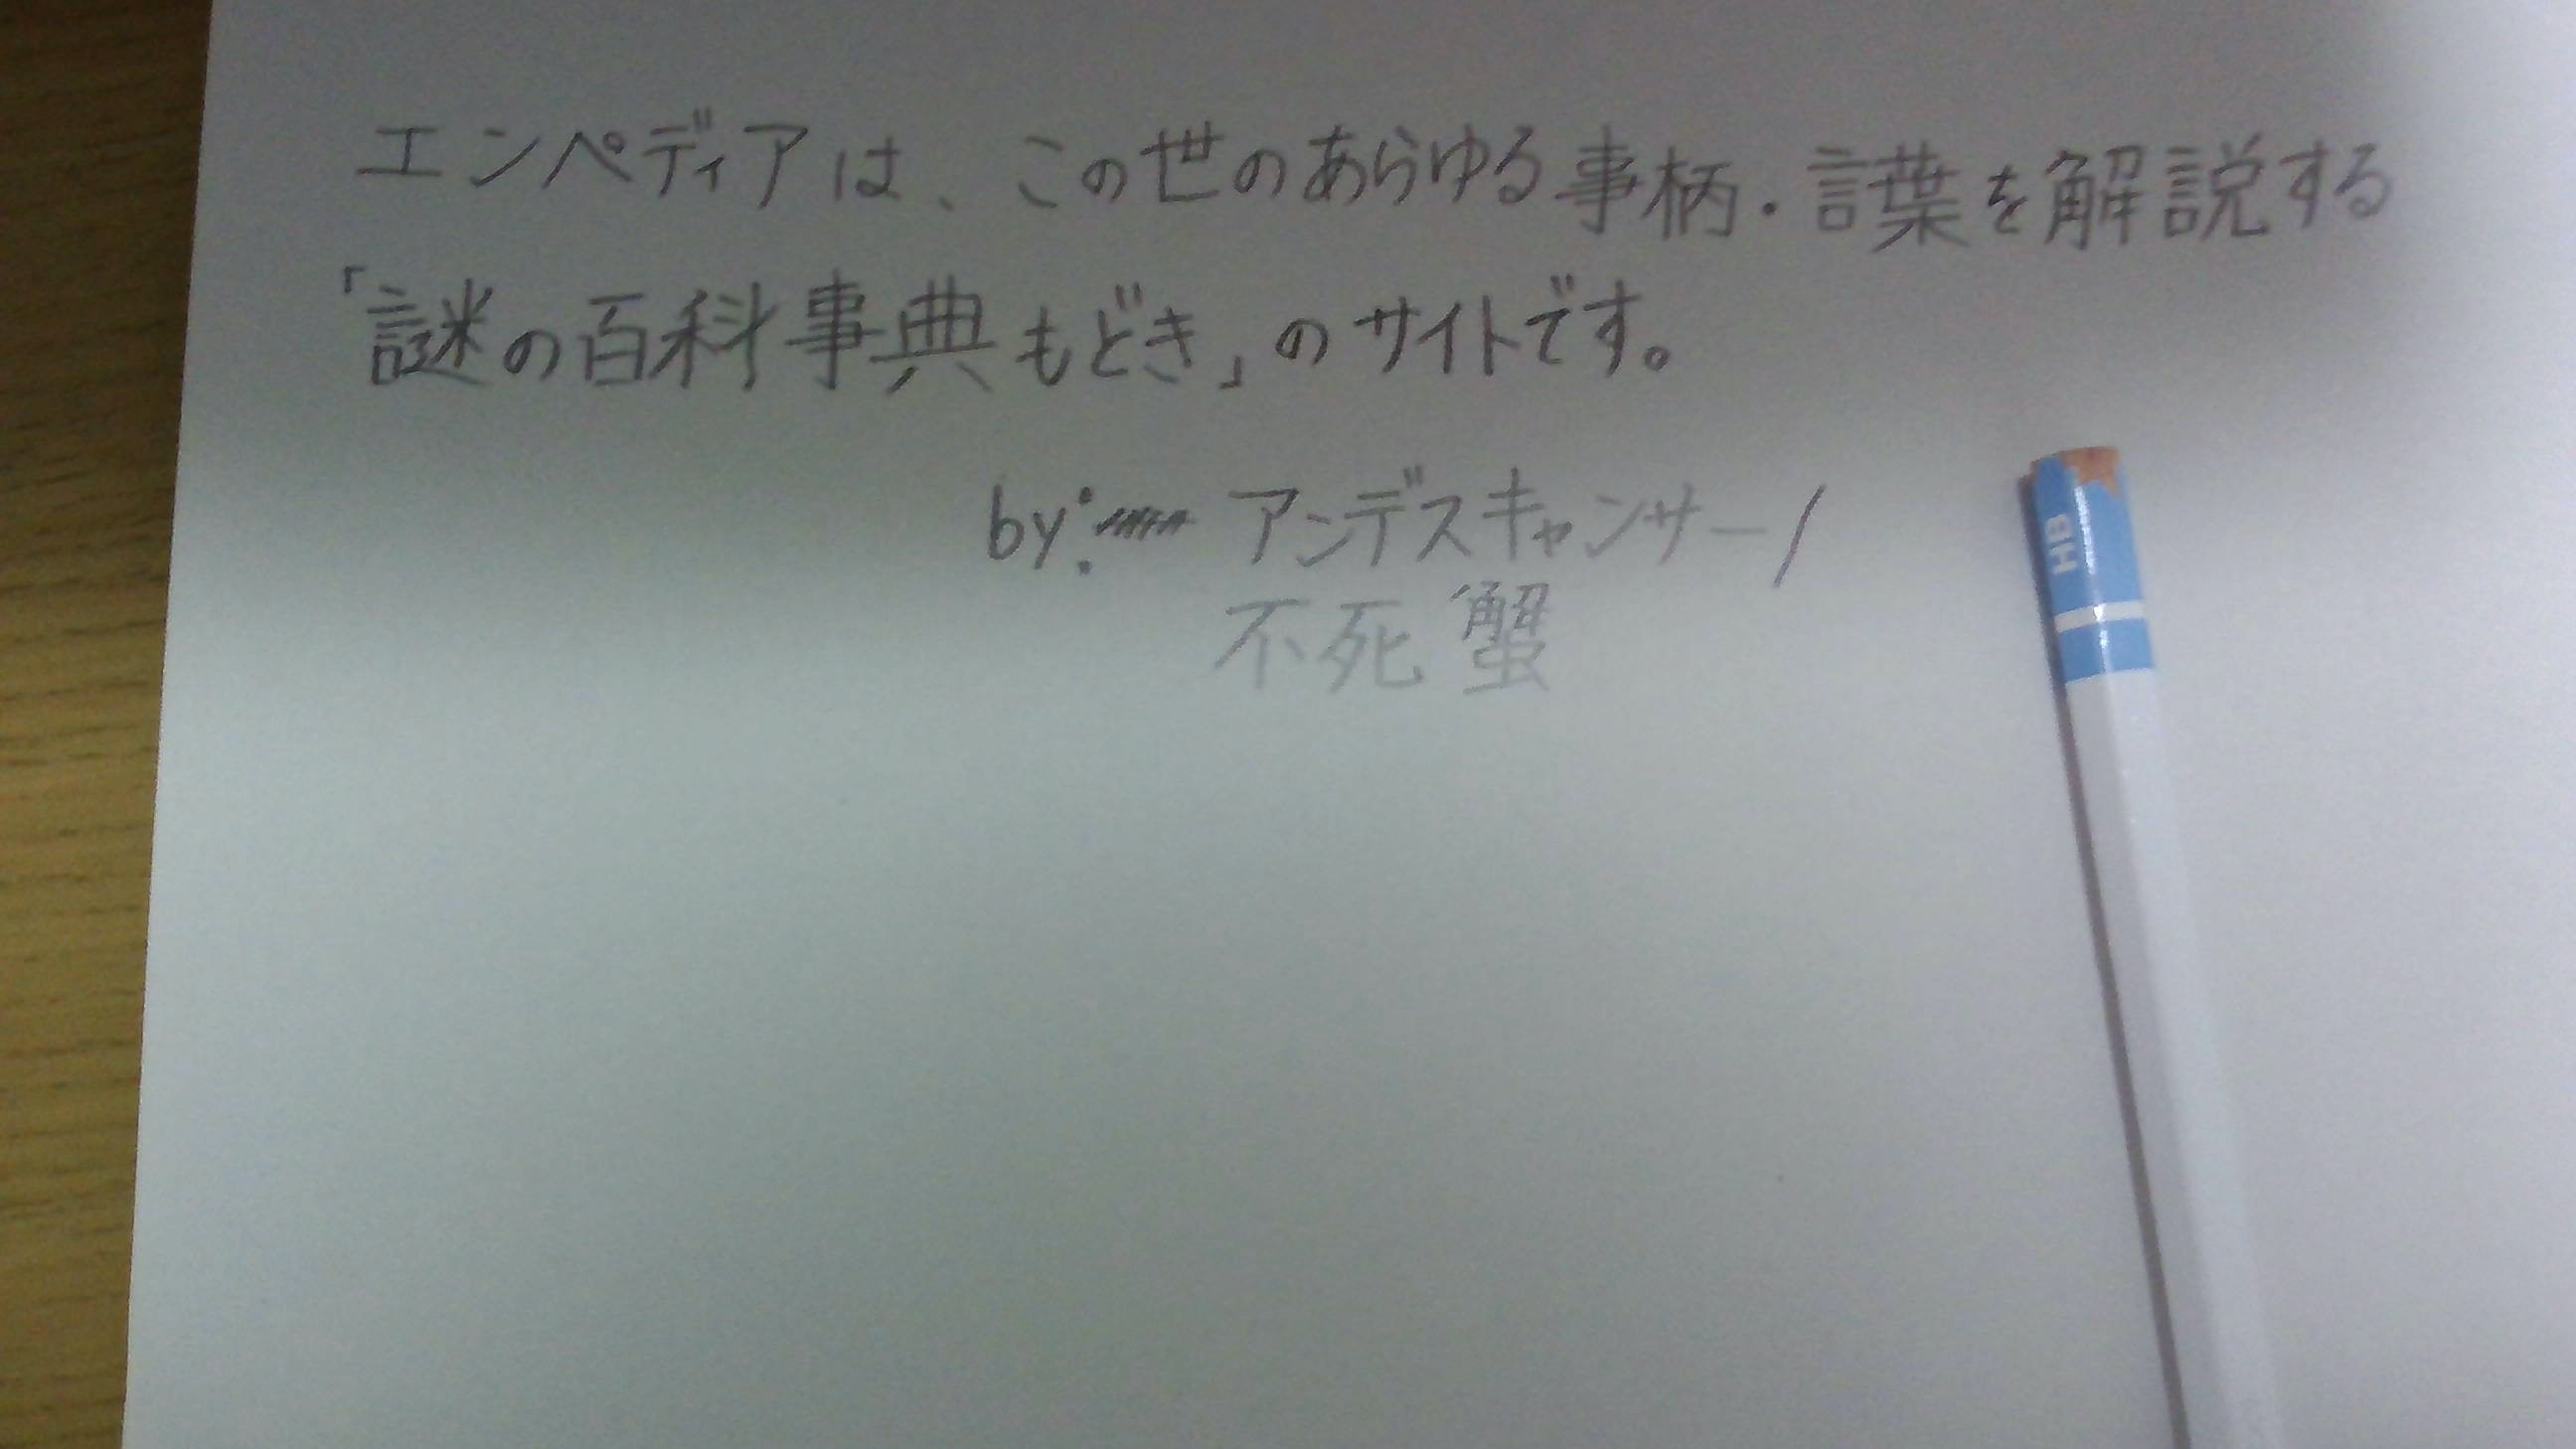 エンペディアは、この世のあらゆる事柄・言葉を解説する
「謎の百科事典もどき」のサイトです。
by: アンデスキャンサー/
不死蟹
HB